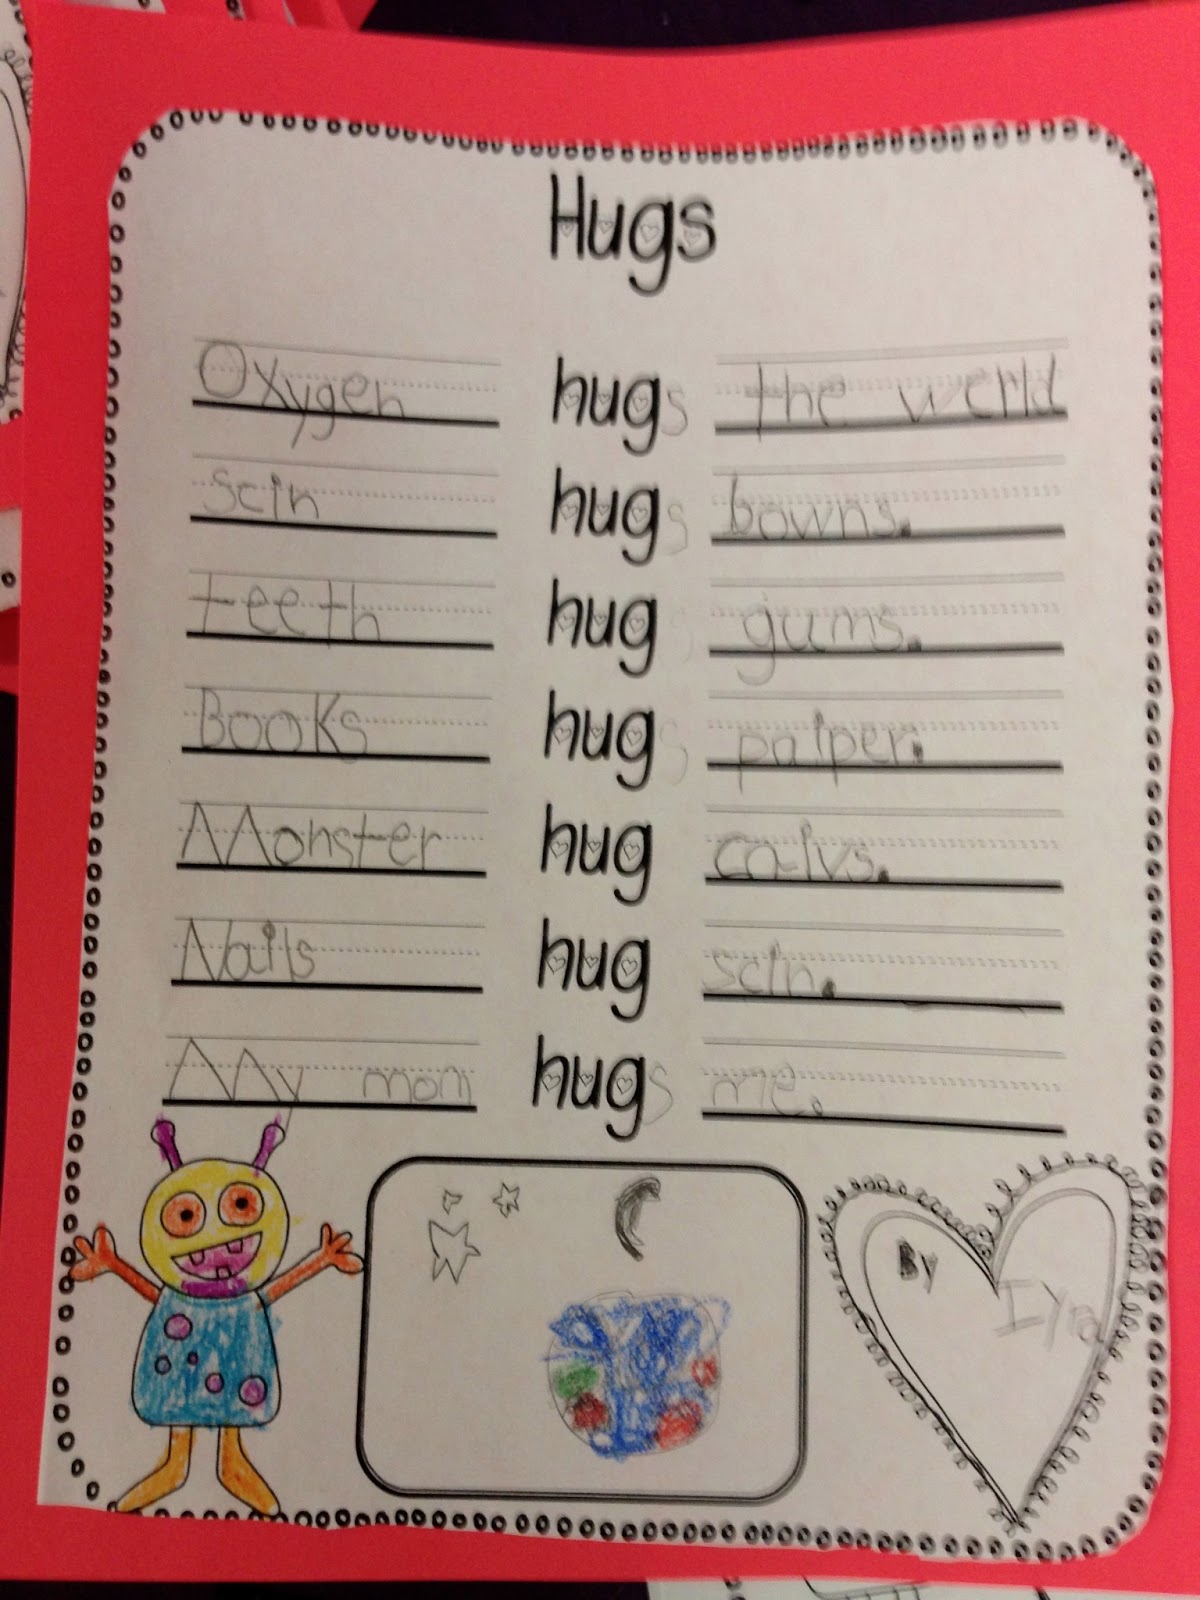 Hugs
Oxygen hugs the werld
scin hugs bowns.
teeth hug gums.
Books hug palper.
Monster hug calvs.
Nails hug scin.
My mom hugs me.
By
Iyra